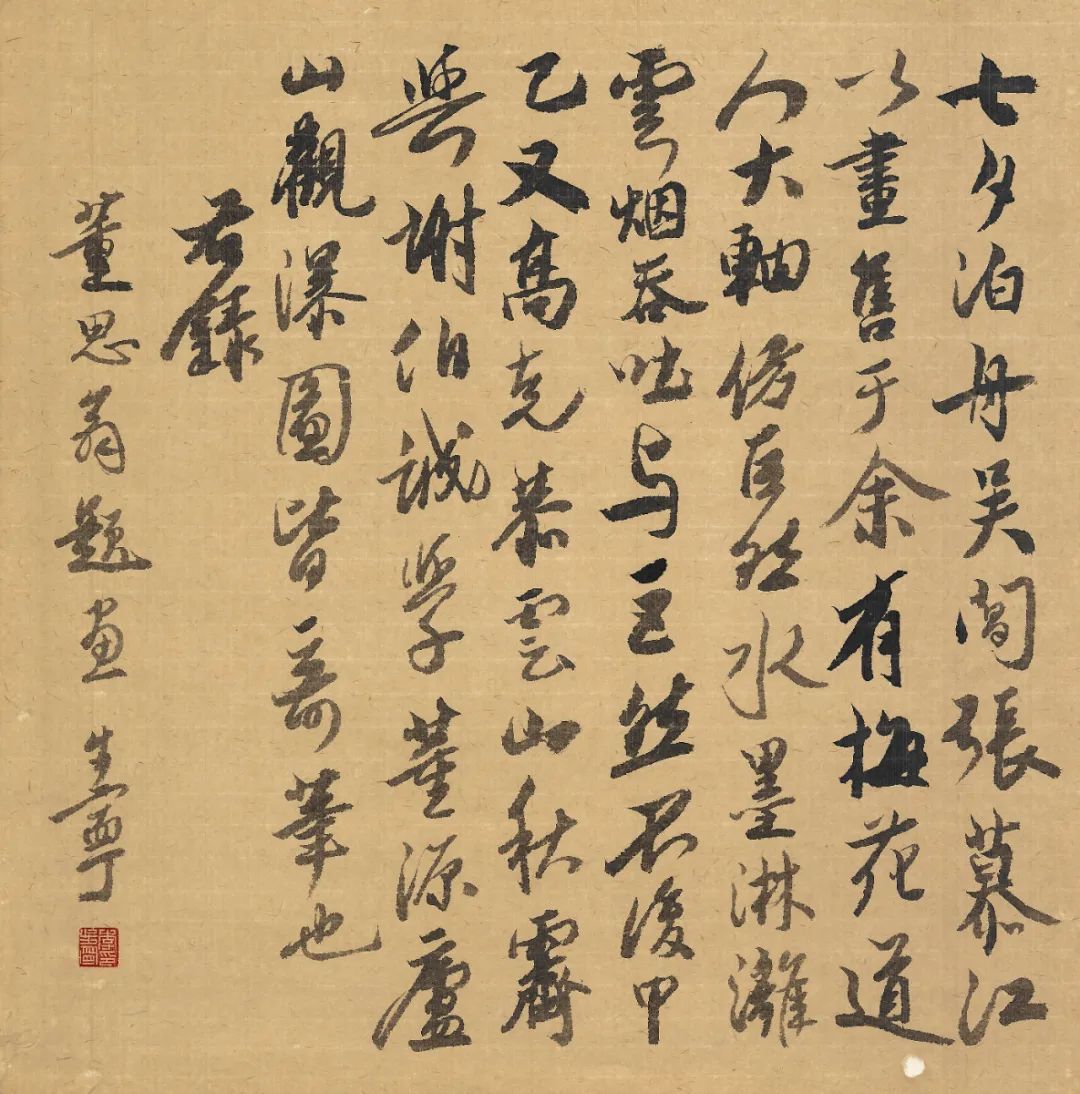 七夕泊舟吴閶張慕江
以畫售于余有梅花道
人大軸仿巨然水墨淋灕
雲烟吞吐与巨然不復甲
乙又高克恭雲山秋霽
與謝伯誠學董源廬
山觀瀑圖皆奇筆也
右錄
董思翁題画 生寧